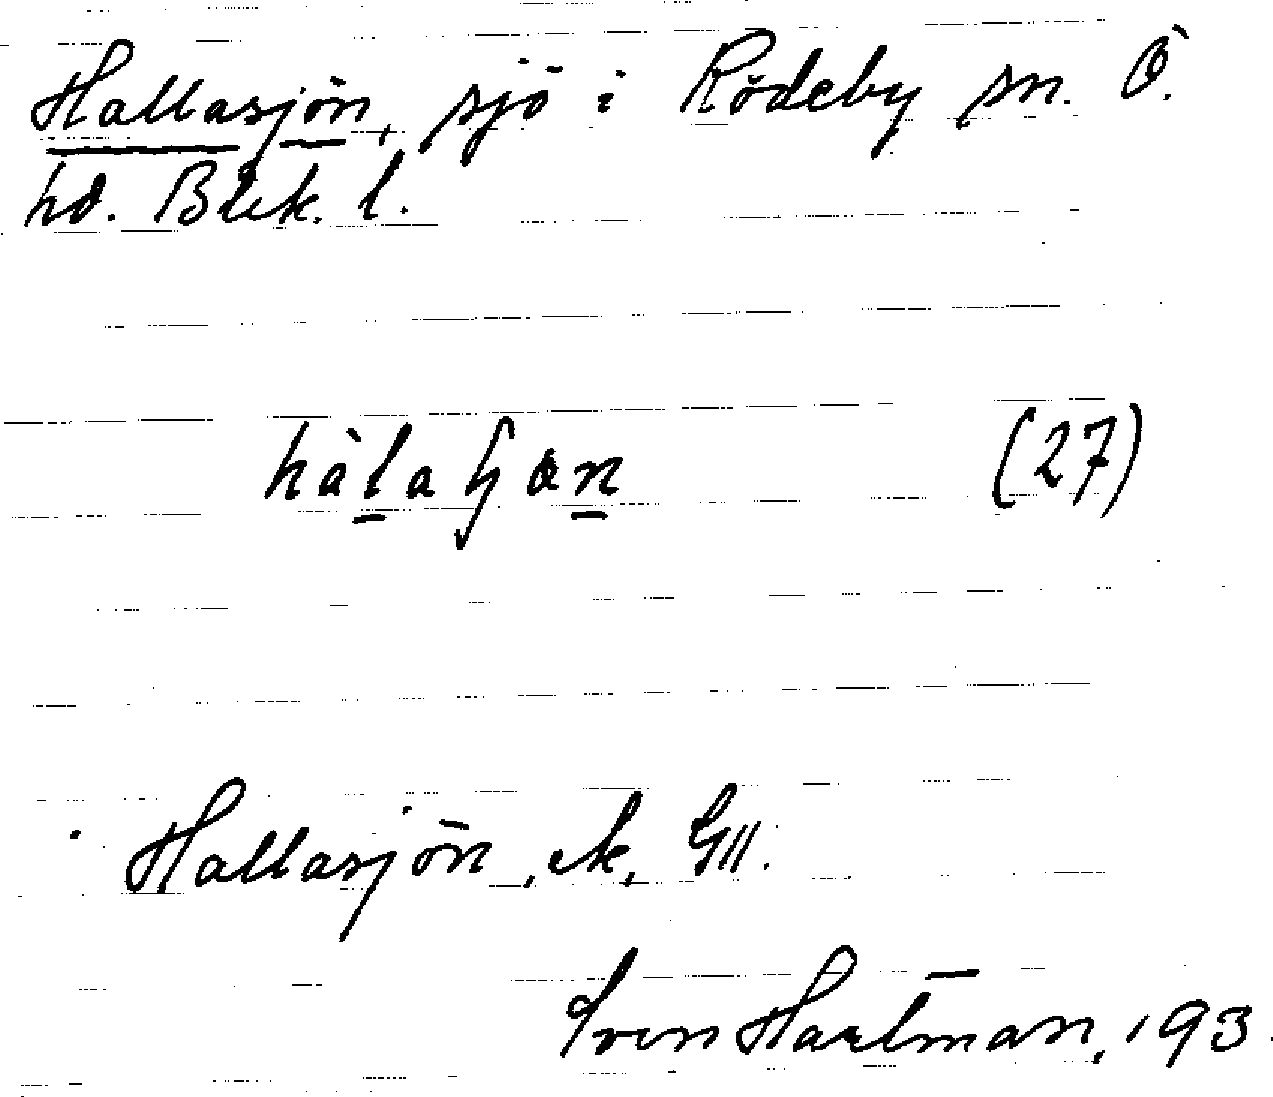 Hallasjön, sjö i Rödeby sn. Ö.
hd. Blek. l.
hàlaɧɷn (27)
Hallasjön, ek,
Sven Hartman, 193